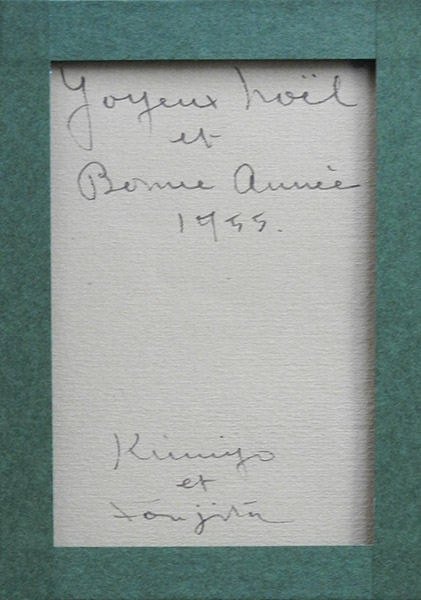 Joyeux Noël
et
Bonne Année
1955.
Kimiyo
et
Foujita